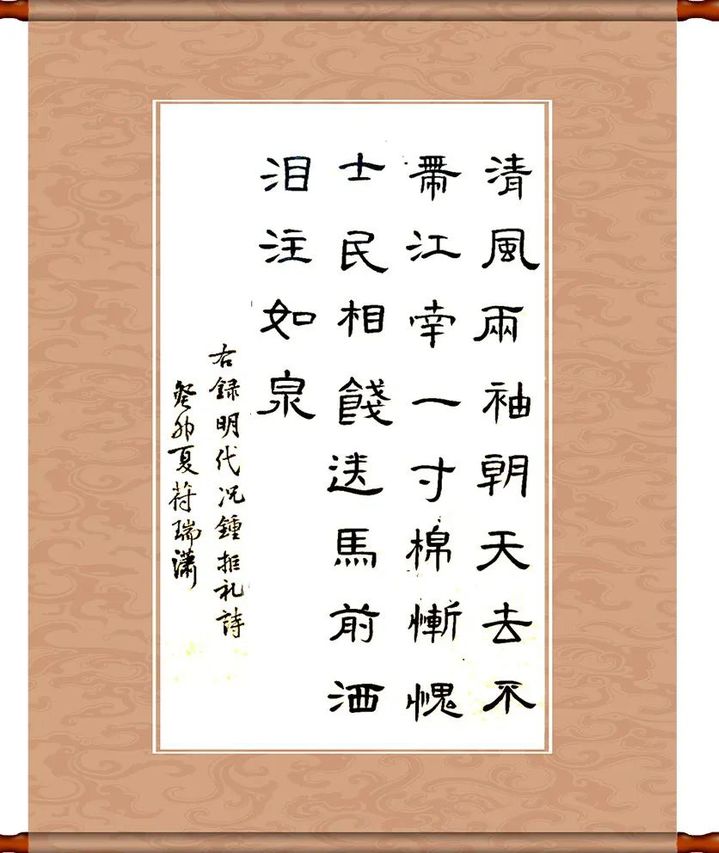 清風兩袖朝天去不
帶江南一寸棉慚愧
士民相餞送馬前洒
泪注如泉
右録明代况鍾拒礼詩
癸卯夏符瑞瀟